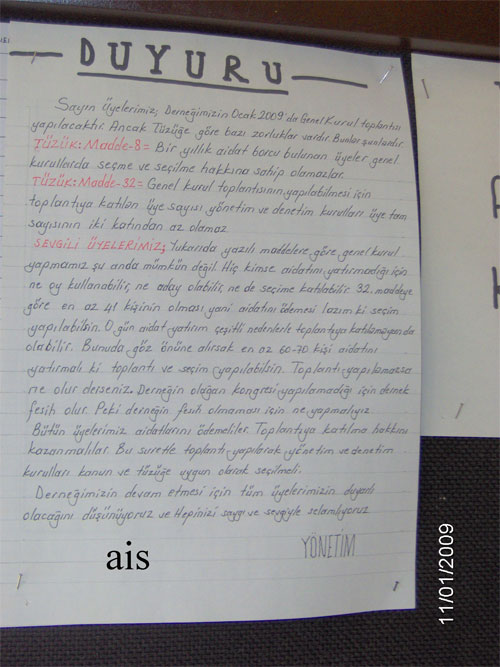 DUYURU
Sayın Üyelerimiz; Derneğimizin Ocak 2009 da Genel Kurul toplantısı
yapılacaktır. Ancak Tüzüğe göre bazı zorluklar vardır. Bunlar şunlardır.
TÜZÜK: Madde-8= Bir yıllık aidat borcu bulunan üyeler genel
kurullarda seçme ve seçilme hakkına sahip olamazlar.
TÜZÜK: Madde-32= Genel kurul toplantısının yapılabilmesi için
toplantıya katılan üye sayısı yönetim ve denetim kurulları üye tam
sayısının iki katından az olamaz
SEVGİLİ ÜYELERİMİZ; Yukarıda yazılı maddelere göre genel kurul
yapmamız şu anda mümkün değil. Hiç kimse aidatını yatırmadığı için
ne oy kullanabilir, ne aday olabilir, ne de seçime katılabilir. 32. maddeye
göre en az 41 kişinin olması yani aidatını ödemesi lazım ki seçim
yapılabilsin. O gün aidat yatırım çeşitli nedenlerle toplantıya katılamayan da
olabilir. Bunuda göz önüne alırsak en az 60-70 kişi aidatını
yatırmalı ki toplantı ve seçim yapılabilsin. Toplantı yapılamazsa
ne olur derseniz. Derneğin olağan kongresi yapılamadığı için dernek
fesih olur. Peki derneğin fesih olmaması için ne yapmalıyız
Bütün üyelerimiz aidatlarını ödemeliler. Toplantıya katılma hakkını
kazanmalılar. Bu suretle toplantı yapılarak yönetim ve denetim
kurulları kanun ve tüzüğe uygun olarak seçilmeli.
Derneğimizin devam etmesi için tüm üyelerimizin duyarlı
olacağını düşünüyoruz ve Hepinizi saygı ve sevgiyle selamlıyoruz
YÖNETİM
ais
11/01/2009